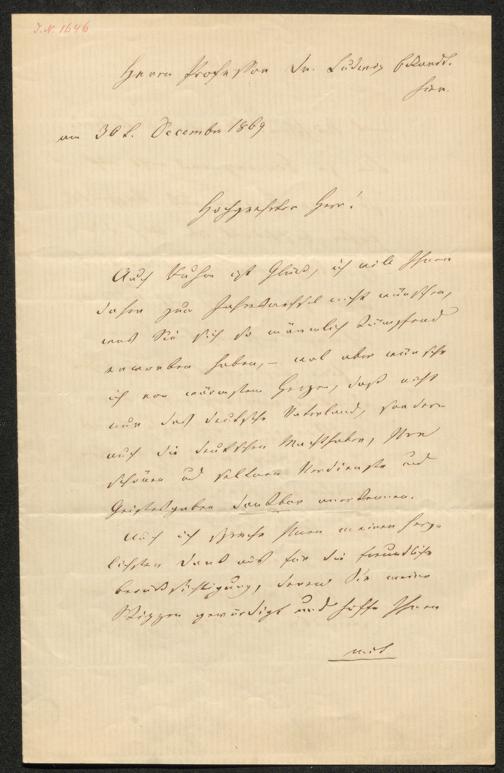 J.N. 1646
Herrn Professor Dr. Ludwig Eckardt.
hier.
am 30t. December 1869
Hochgeehrter Herr!
Auch Ruhm ist Glück, ich will Ihnen
daher zum Jahreswechsel nicht wünschen,
was Sie sich so männlich kämpfend
erworben haben, – wol aber wünsche
ich von wärmsten Herzen, daß nicht
nur das deutsche Vaterland, sondern
auch die deutschen Machthaber, Ihre
schönen und seltnen Verdienste und
Geistesgaben dankbar anerkennen.
Auch ich spreche Ihnen meinen herz-
lichsten Dank aus für die freundliche
Berücksichtigung, deren Sie meine
Skizzen gewürdigt und hoffe Ihnen
mit